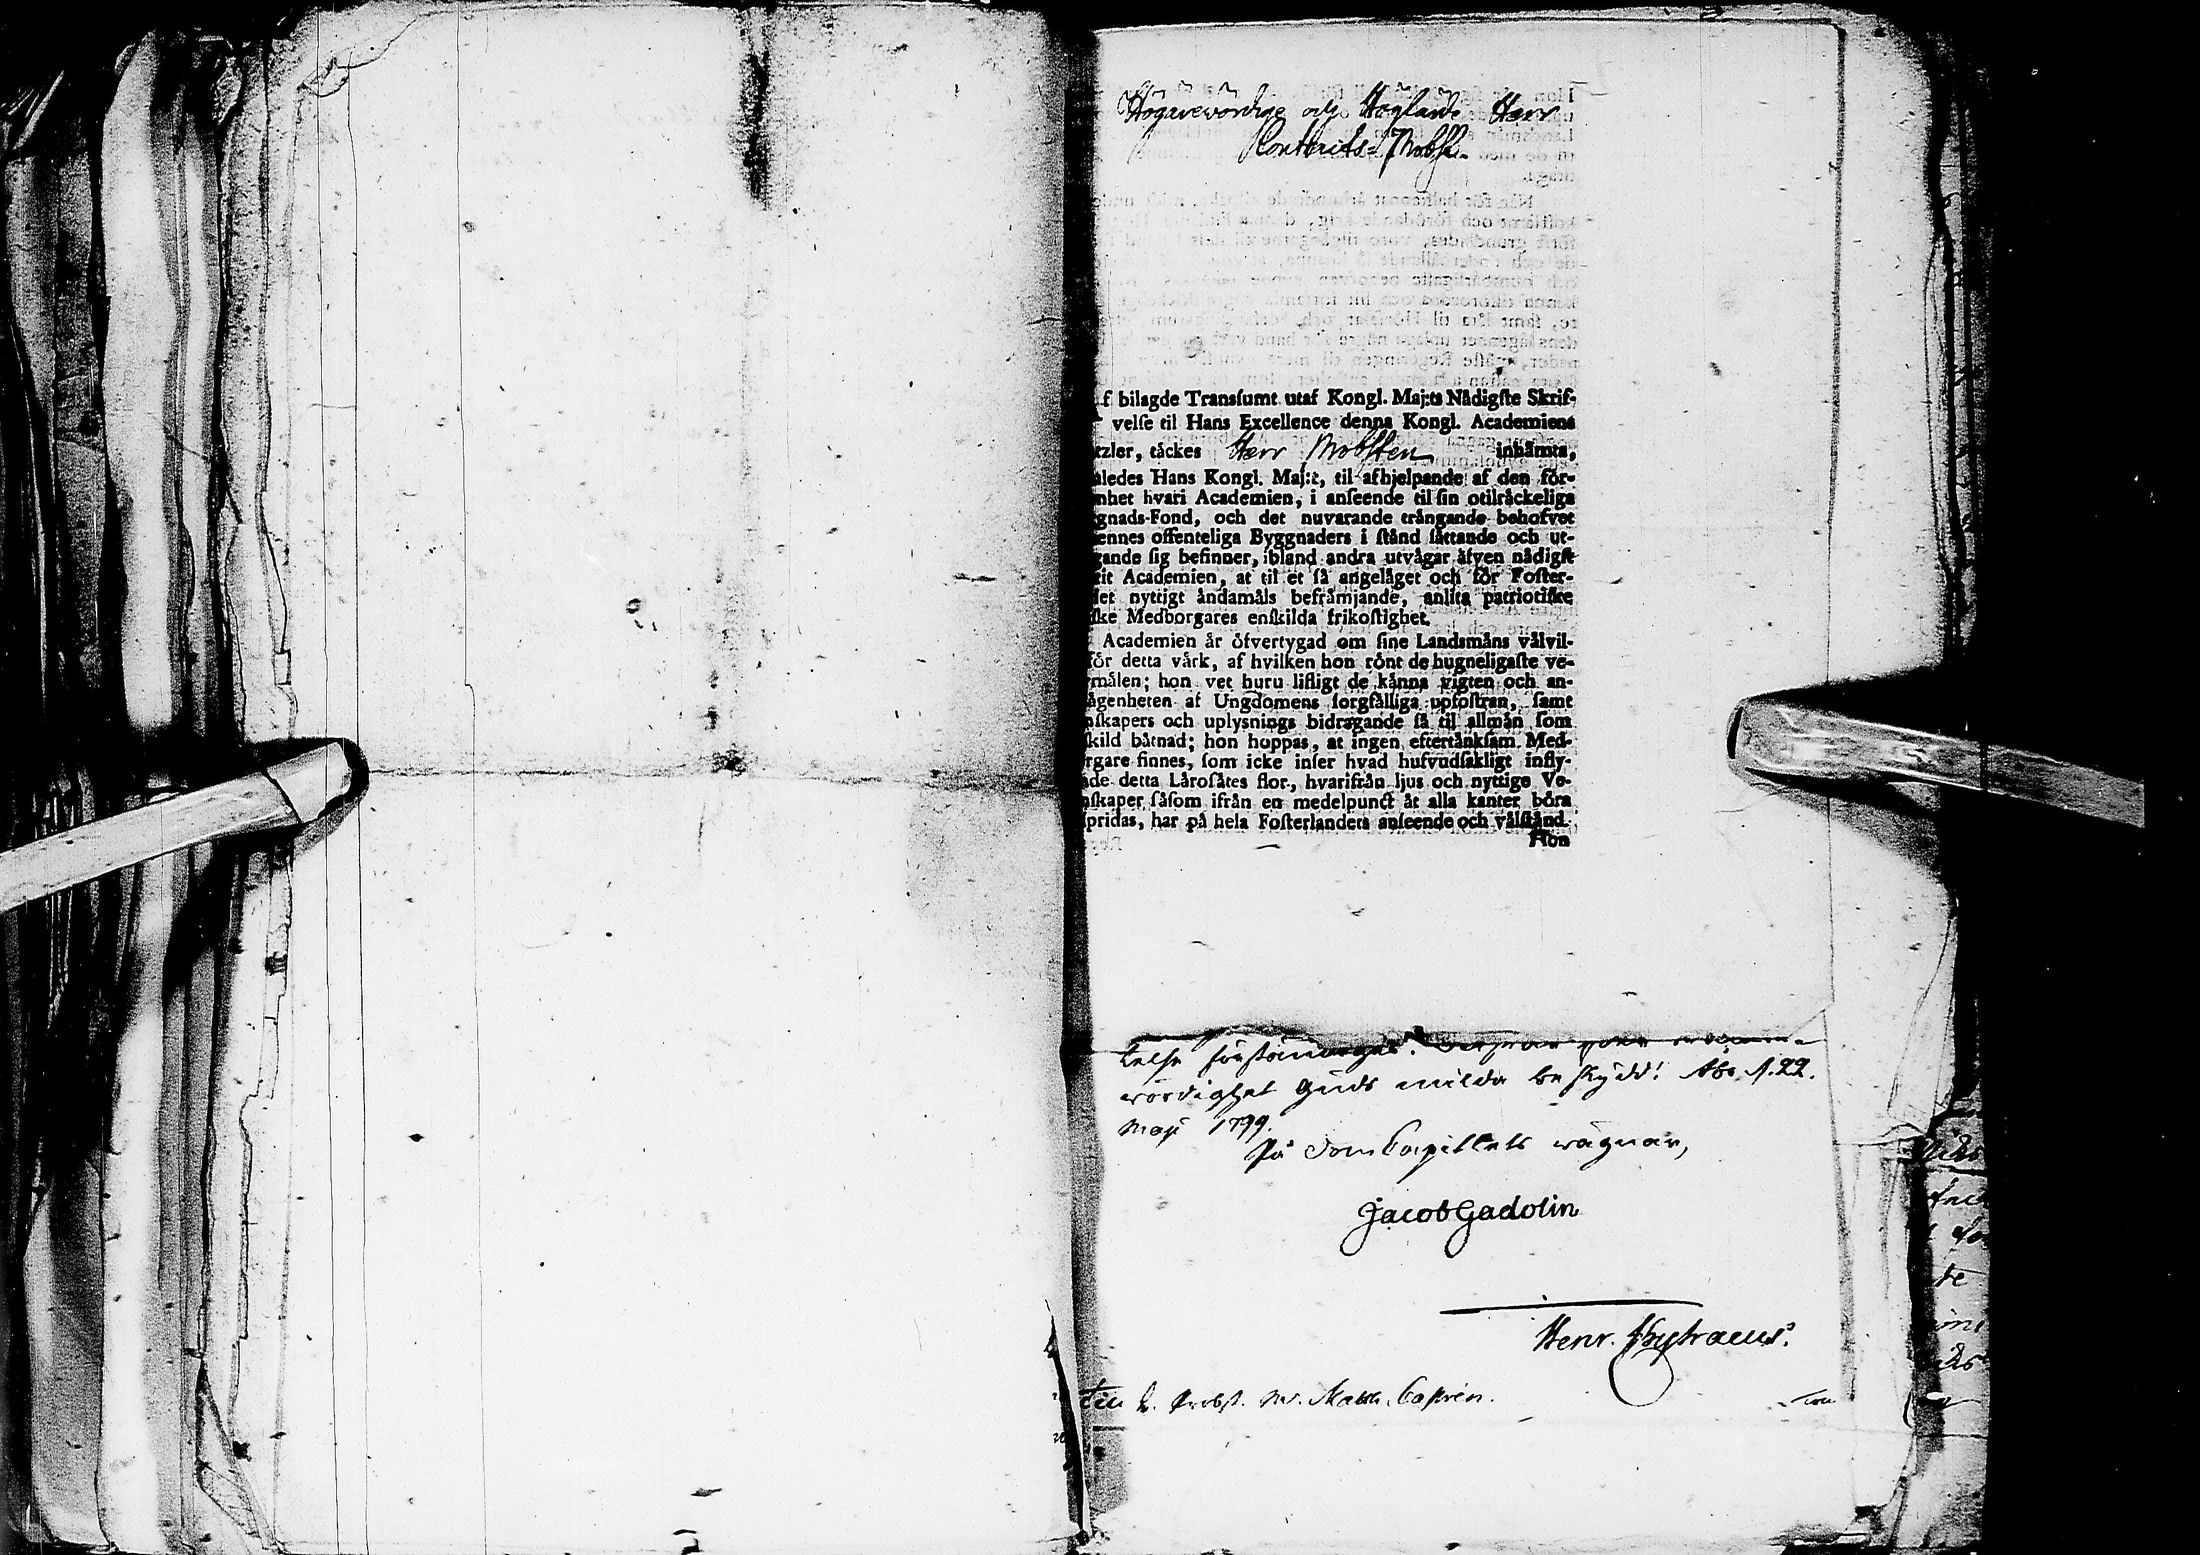 Högärewördige och Höglärde Herr
Contracts-Probst.
f bilagde Transſumt utaf Kongl. Maj:ts Nådigſte Skrif-
velſe til Hans Excellence denna Kongl. Academiens
tzler, täckes Herr Probſten inhämta,
aledes Hans Kongl. Maj:t, til afhjelpande af den för-
nhet hvari Academien, i anſeende til ſin otilräckeliga
gnads-Fond, och det nuvarande trängande behofvet
ennes offenteliga Byggnaders i ſtånd ſättande och ut-
gande ſig befinner, ibland andra utvägar äfven nådigſt
tit Academien, at til et ſå angeläget och för Foſter-
det nyttigt ändamåls befrämjande, anlita patriotiſke
ſke Medborgares enſkilda frikoſtighet.
Academien är öfvertygad om ſine Landsmäns välvil-
för detta värk, af hvilken hon rönt de hugneligaſte ve-
rmälen; hon vet huru lifligt de känna vigten och an-
ägenheten af Ungdomens ſorgfälliga upfoſtran, ſamt
nſkapers och uplysnings bidragande ſå til allmän ſom
ſkild båtnad; hon hoppas, at ingen eftertänkſam Med-
rgare finnes, ſom icke inſer hvad hufvudſakligt infly-
ade detta Läroſätes flor, hvarifrån ljus och nyttige Ve-
nſkaper ſåſom ifrån en medelpunct åt alla kanter böra
ſpridas, har på hela Foſterlandets anſeende och välſtånd.
Hon
wördighet Guds milda beskydd! Åbo d. 22.
Maji 1799.
På DomCapitlets wägnar,
Jacob Gadolin
Henr.
Till Probst. M. Matth. Castrén.